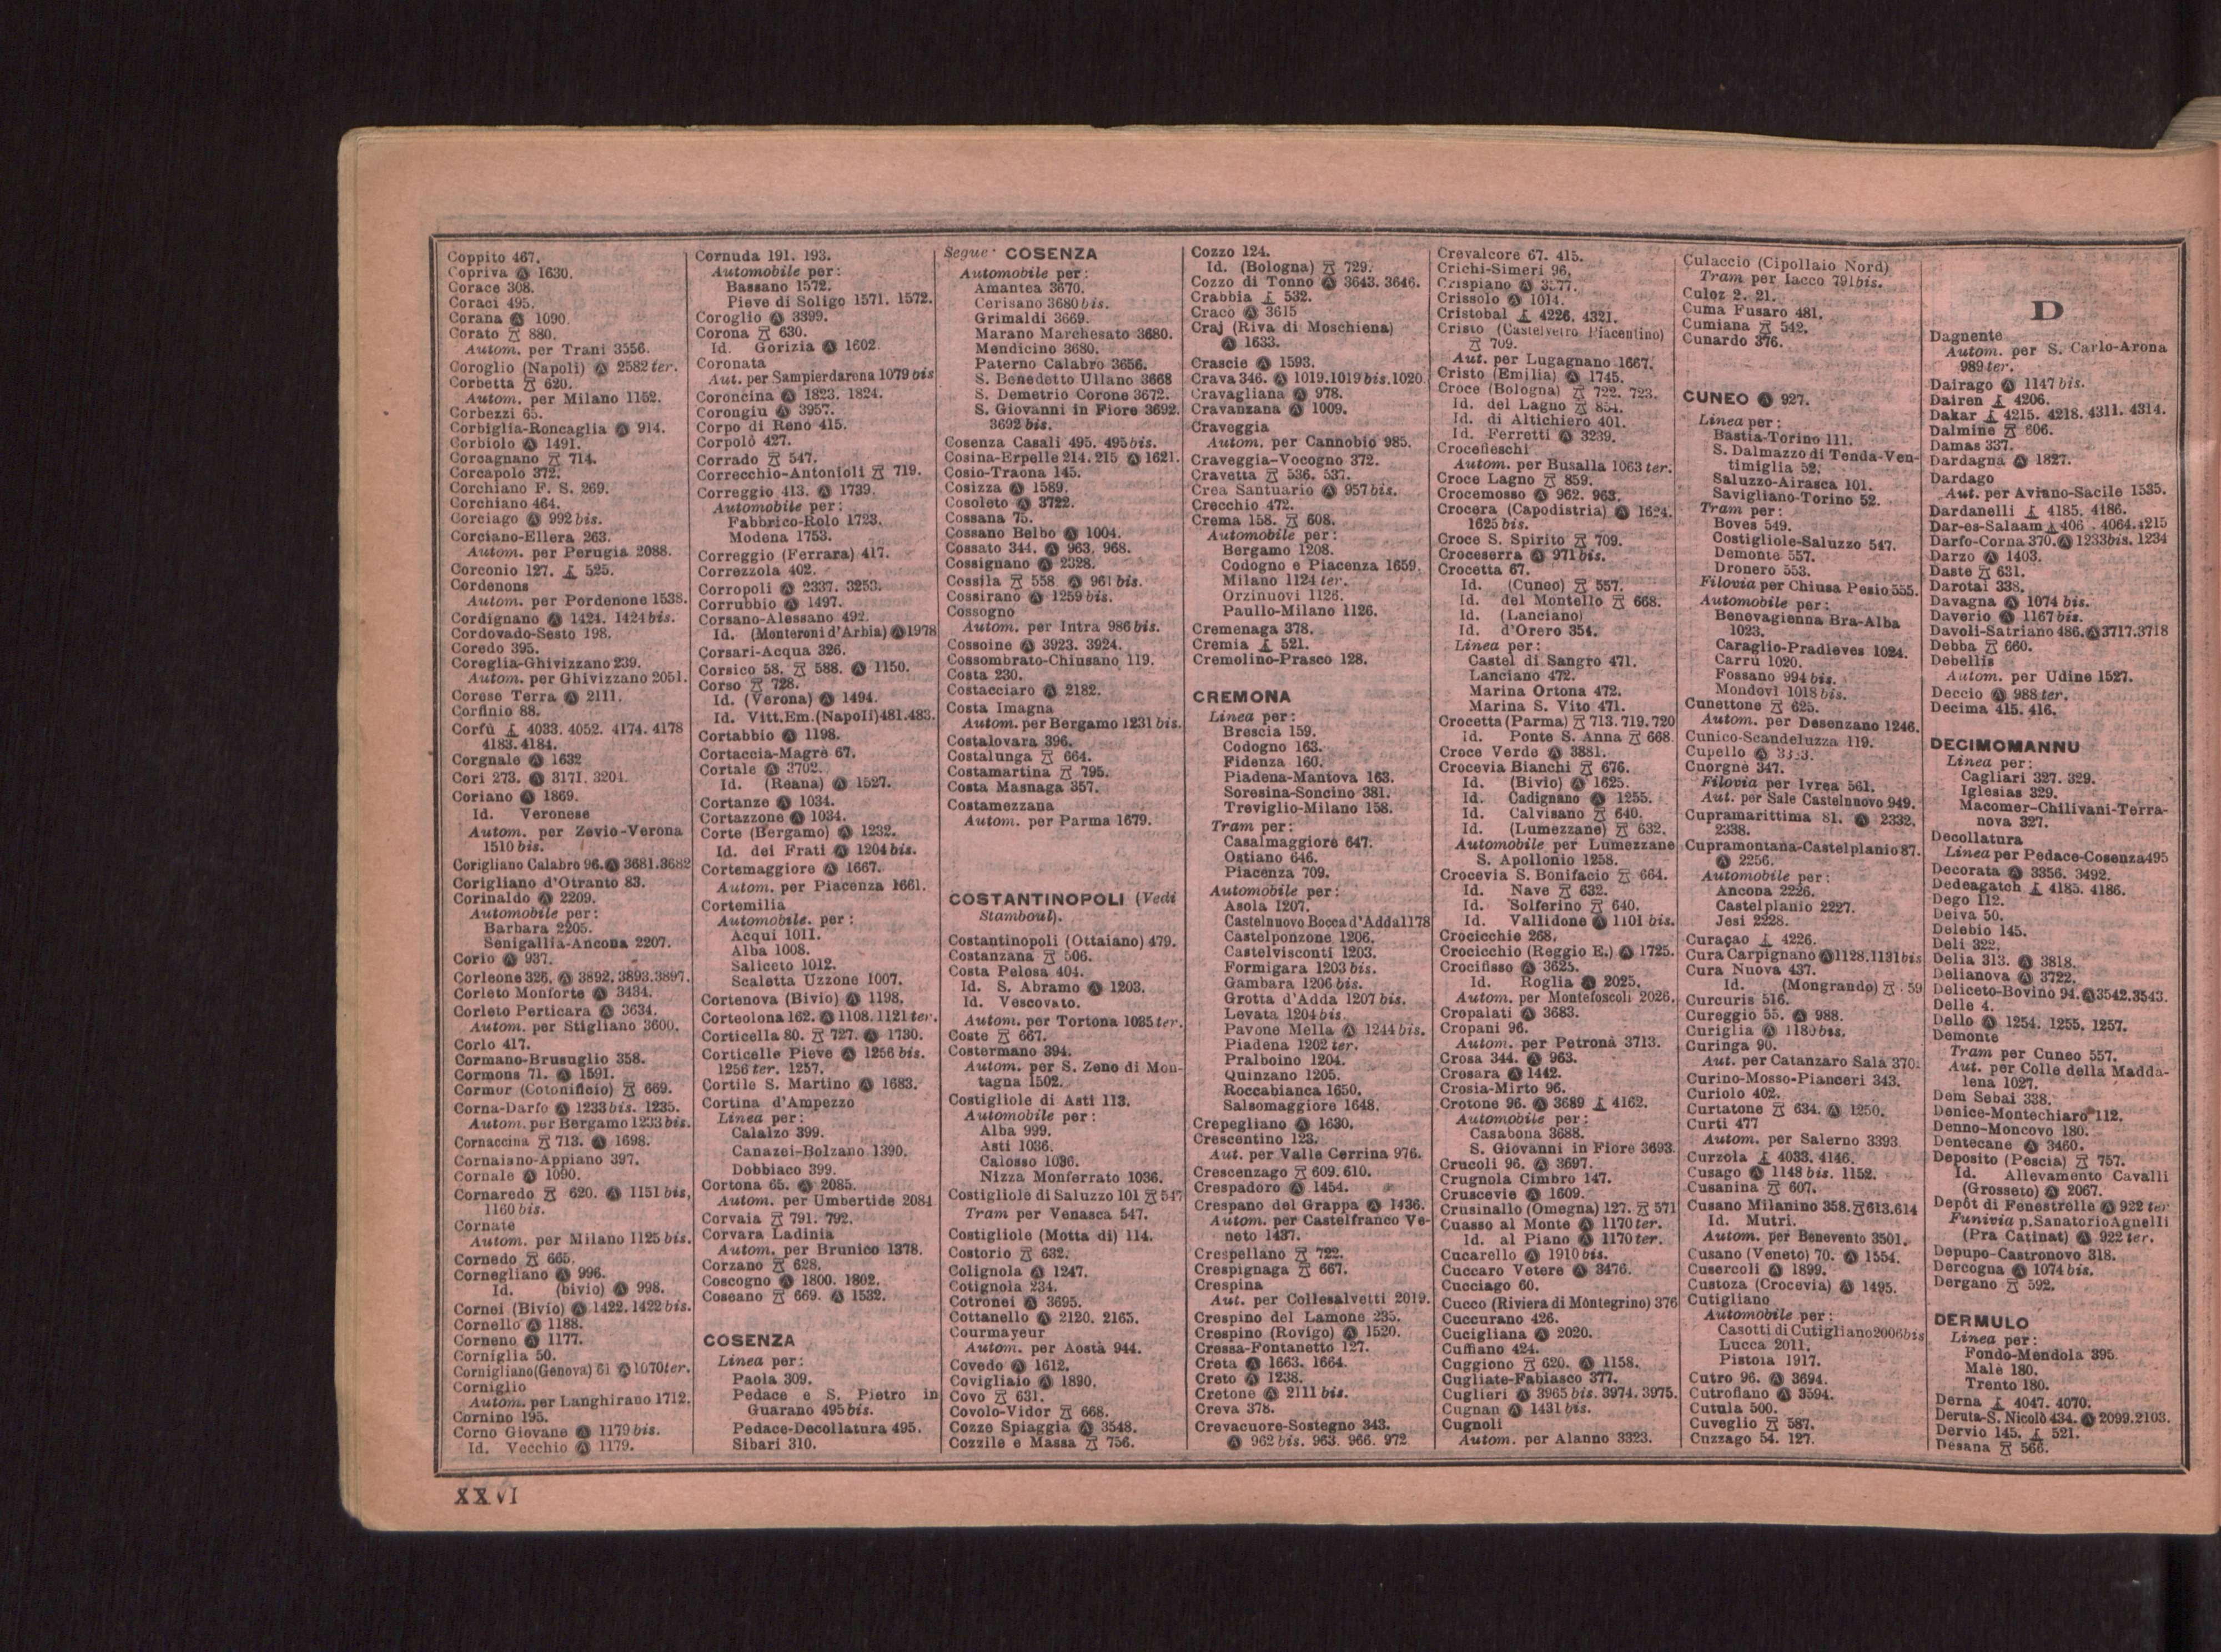 Coppito 467.
Copriva Ⓐ 1630.
Corace 308.
Coraci 495.
Corana Ⓐ 1090.
Corato 880.
Autom. per Trani 3556.
Coroglio (Napoli) Ⓐ 2582 ter.
Corbetta 620.
Autom. per Milano 1152.
Corbezzi 65.
Corbiglia-Roncaglia Ⓐ 914.
Corbiolo Ⓐ 1491.
Corcagnano 714.
Corcapolo 372.
Corchiano F. S. 269.
Corchiano 464.
Corciago Ⓐ 992 bis.
Corciano-Ellera 263.
Autom. per Perugia 2088.
Corconio 127. 525.
Cordenons
Autom. per Pordenone 1538.
Cordignano Ⓐ 1424. 1424 bis.
Cordovado-Sesto 198.
Coredo 395.
Coreglia-Ghivizzano 239.
Autom. per Ghivizzano 2051.
Corese Terra Ⓐ 2111.
Corfinio 88.
Corfù 4033. 4052. 4174. 4178
4183. 4184.
Corgnale Ⓐ 1632
Cori 273. Ⓐ 3171. 3201.
Coriano Ⓐ 1869.
Id. Veronese
Autom. per Zevio-Verona
1510 bis.
Corigliano Calabro 96. Ⓐ 3681.3682
Corigliano d'Otranto 83.
Corinaldo Ⓐ 2209.
Automobile per:
Barbara 2205.
Senigallia-Ancona 2207.
Corio Ⓐ 937.
Corleone 326. Ⓐ 3892. 3893.3897.
Corleto Monforte Ⓐ 3434.
Corleto Perticara Ⓐ 3634.
Autom. per Stigliano 3600.
Corlo 417.
Cormano-Brusuglio 358.
Cormons 71. Ⓐ 1591.
Cormor (Cotonificio) 669.
Corna-Darfo Ⓐ 1233 bis. 1235.
Autom. per Bergamo 1233 bis.
Cornaccina 713. Ⓐ 1698.
Cornaiano-Appiano 397.
Cornale Ⓐ 1090.
Cornaredo 620. Ⓐ 1151 bis,
1160 bis.
Cornate
Autom. per Milano 1125 bis.
Cornedo 665.
Cornegliano Ⓐ 996.
Id. (bivio) Ⓐ 998.
Cornei (Bivio) Ⓐ 1422. 1422 bis.
Cornello Ⓐ 1188.
Corneno Ⓐ 1177.
Corniglia 50.
Cornigliano (Genova) 61 Ⓐ 1070 ter.
Corniglio
Autom. per Langhirano 1712.
Cornino 195.
Corno Giovane Ⓐ 1179 bis.
Id. Vecchio Ⓐ 1179.
Cornuda 191. 193.
Automobile per:
Bassano 1572.
Pieve di Soligo 1571. 1572.
Coroglio Ⓐ 3399.
Corona 630.
Id. Gorizia Ⓐ 1602.
Coronata
Aut. per Sampierdarena 1079 bis
Coroncina Ⓐ 1823. 1824.
Corongiu Ⓐ 3957.
Corpo di Reno 415.
Corpolò 427.
Corrado 547.
Correcchio-Antonioli 719.
Correggio 413. Ⓐ 1739.
Automobile per:
Fabbrico-Rolo 1723.
Modena 1753.
Correggio (Ferrara) 417.
Correzzola 402.
Corropoli Ⓐ 2337. 3253.
Corrubbio Ⓐ 1497.
Corsano-Alessano 492.
Id. (Monteroni d'Arbia) Ⓐ 1978
Corsari-Acqua 326.
Corsico 58. 588. Ⓐ 1150.
Corso 728.
Id. (Verona) Ⓐ 1494.
Id. Vitt. Em. (Napoli) 481.483.
Cortabbio Ⓐ 1198.
Cortaccia-Magrè 67.
Cortale Ⓐ 3702.
Id. (Reana) Ⓐ 1527.
Cortanze Ⓐ 1034.
Cortazzone Ⓐ 1034.
Corte (Bergamo) Ⓐ 1232.
Id. dei Frati Ⓐ 1204 bis.
Cortemaggiore Ⓐ 1667.
Autom. per Piacenza 1661.
Cortemilia
Automobile. per:
Acqui 1011.
Alba 1008.
Saliceto 1012.
Scaletta Uzzone 1007.
Cortenova (Bivio) Ⓐ 1198.
Corteolona 162. Ⓐ 1108. 1121 ter.
Corticella 80. 727. Ⓐ 1730.
Corticelle Pieve Ⓐ 1256 bis.
1256 ter. 1257.
Cortile S. Martino Ⓐ 1683.
Cortina d'Ampezzo
Linea per:
Calalzo 399.
Canazei-Bolzano 1390.
Dobbiaco 399.
Cortona 65. Ⓐ 2085.
Autom. per Umbertide 2084
Corvaia 791. 792.
Corvara Ladinia
Autom. per Brunico 1378.
Corzano 628.
Coscogno Ⓐ 1800. 1802.
Coseano 669. Ⓐ 1532.
COSENZA
Linea per:
Paola 309.
Pedace e S. Pietro in
Guarano 495 bis.
Pedace-Decollatura 495.
Sibari 310.
Segue: COSENZA
Automobile per:
Amantea 3670.
Cerisano 3680 bis.
Grimaldi 3669.
Marano Marchesato 3680.
Mendicino 3680.
Paterno Calabro 3656.
S. Benedetto Ullano 3668
S. Demetrio Corone 3672.
S. Giovanni in Fiore 3692.
3692 bis.
Cosenza Casali 495. 495 bis.
Cosina-Erpelle 214. 215 Ⓐ 1621.
Cosio-Traona 145.
Cosizza Ⓐ 1589.
Cosoleto Ⓐ 3722.
Cossana 75.
Cossano Belbo Ⓐ 1004.
Cossato 344. Ⓐ 963. 968.
Cossignano Ⓐ 2328.
Cossila 558. Ⓐ 961 bis.
Cossirano Ⓐ 1259 bis.
Cossogno
Autom. per Intra 986 bis.
Cossoine Ⓐ 3923. 3924.
Cossombrato-Chiusano 119.
Costa 230.
Costacciaro Ⓐ 2182.
Costa Imagna
Autom. per Bergamo 1231 bis.
Costalovara 396.
Costalunga 664.
Costamartina 795.
Costa Masnaga 357.
Costamezzana
Autom. per Parma 1679.
COSTANTINOPOLI (Vedi
Stamboul).
Costantinopoli (Ottaiano) 479.
Costanzana 506.
Costa Pelosa 404.
Id. S. Abramo Ⓐ 1203.
Id. Vescovato.
Autom. per Tortona 1035 ter.
Coste 667.
Costermano 394.
Autom. per S. Zeno di Mon-
tagna 1502.
Costigliole di Asti 113.
Automobile per:
Alba 999.
Asti 1036.
Calosso 1036.
Nizza Monferrato 1036.
Costigliole di Saluzzo 101 547
Tram per Venasca 547.
Costigliole (Motta di) 114.
Costorio 632.
Cotignola Ⓐ 1247.
Cotignola 234.
Cotronei Ⓐ 3695.
Cottanello Ⓐ 2120. 2165.
Courmayeur
Autom. per Aosta 944.
Covedo Ⓐ 1612.
Covigliaio Ⓐ 1890.
Covo 631.
Covolo-Vidor 668.
Cozze Spiaggia Ⓐ 3548.
Cozzile e Massa 756.
Cozzo 124.
Id. (Bologna) 729.
Cozzo di Tonno Ⓐ 3643. 3646.
Crabbia 532.
Craco Ⓐ 3615
Craj (Riva di Moschiena)
Ⓐ 1633.
Crascie Ⓐ 1593.
Crava 346. Ⓐ 1019.1019 bis.1020
Cravagliana Ⓐ 978.
Cravanzana Ⓐ 1009.
Craveggia
Autom. per Cannobio 985.
Craveggia-Vocogno 372.
Cravetta 536. 537.
Crea Santuario Ⓐ 957 bis.
Crecchio 472.
Crema 158. 608.
Automobile per:
Bergamo 1208.
Codogno e Piacenza 1659.
Milano 1124 ter.
Orzinuovi 1126.
Paullo-Milano 1126.
Cremenaga 378.
Cremia 521.
Cremolino-Prasco 128.
CREMONA
Linea per:
Brescia 159.
Codogno 163.
Fidenza 160.
Piadena-Mantova 163.
Soresina-Soncino 381.
Treviglio-Milano 158.
Tram per:
Casalmaggiore 647.
Ostiano 646.
Piacenza 709.
Automobile per:
Asola 1207.
Castelnuovo Bocca d'Adda 1178
Castelponzone 1206.
Castelvisconti 1203.
Formigara 1203 bis.
Gambara 1206 bis.
Grotta d'Adda 1207 bis.
Levata 1204 bis.
Pavone Mella Ⓐ 1244 bis.
Piadena 1202 ter.
Pralboino 1204.
Quinzano 1205.
Roccabianca 1650.
Salsomaggiore 1648.
Crepegliano Ⓐ 1630.
Crescentino 123.
Aut. per Valle Cerrina 976.
Crescenzago 609. 610.
Crespadoro Ⓐ 1454.
Crespano del Grappa Ⓐ 1436.
Autom. per Castelfranco Ve-
neto 1437.
Crespellano 722.
Crespignaga 667.
Crespina
Aut. per Collesalvetti 2019.
Crespino del Lamone 235.
Crespino (Rovigo) Ⓐ 1520.
Cressa-Fontanetto 127.
Creta Ⓐ 1663. 1664.
Creto Ⓐ 1238.
Cretone Ⓐ 2111 bis.
Creva 378.
Crevacuore-Sostegno 343.
Ⓐ 962 bis. 963. 966. 972
Crevalcore 67. 415.
Crichi-Simeri 96.
Crispiano Ⓐ
Crissolo Ⓐ 1014.
Cristobal 4226. 4321.
Cristo (Castelvetro Piacentino)
709.
Aut. per Lugagnano 1667.
Cristo (Emilia) Ⓐ 1745.
Croce (Bologna) 722. 723.
Id. del Lagno 854.
Id. di Altichiero 401.
Id. Ferretti Ⓐ 3239.
Crocefieschi
Autom. per Busalla 1063 ter.
Croce Lagno 859.
Crocemosso Ⓐ 962. 963.
Crocera (Capodistria) Ⓐ 1624.
1625 bis.
Croce S. Spirito 709.
Croceserra Ⓐ 971 bis.
Crocetta 67.
Id. (Cuneo) 557.
Id. del Montello 668.
Id. (Lanciano)
Id. d'Orero 354.
Linea per:
Castel di Sangro 471.
Lanciano 472.
Marina Ortona 472.
Marina S. Vito 471.
Crocetta (Parma) 713. 719. 720
Id. Ponte S. Anna 668
Croce Verde Ⓐ 3881.
Crocevia Bianchi 676.
Id. (Bivio) Ⓐ 1625.
Id. Cadignano Ⓐ 1255.
Id. Calvisano 640.
Id. (Lumezzane) 632.
Automobile per Lumezzane
S. Apollonio 1258.
Crocevia S. Bonifacio 664.
Id. Nave 632.
Id. Solferino 640.
Id. Vallidone Ⓐ 1101 bis.
Crocicchie 268.
Crocicchio (Reggio E.) Ⓐ 1725.
Crocifisso Ⓐ 3625.
Id. Roglia Ⓐ 2025.
Autom. per Montefoscoli 2026.
Cropalati Ⓐ 3683.
Cropani 96.
Autom. per Petronà 3713.
Crosa 344. Ⓐ 963.
Crosara Ⓐ 1442.
Crosia-Mirto 96.
Crotone 96. Ⓐ 3689 4162.
Automobile per:
Casabona 3688.
S. Giovanni in Fiore 3693
Crucoli 96. Ⓐ 3697.
Crugnola Cimbro 147.
Cruscevie Ⓐ 1609.
Crusinallo (Omegna) 127. 571
Cuasso al Monte Ⓐ 1170 ter.
Id. al Piano Ⓐ 1170 ter.
Cucarello Ⓐ 1910 bis.
Cuccaro Vetere Ⓐ 3476.
Cucciago 60.
Cucco (Riviera di Montegrino) 376
Cuccurano 426.
Cucigliana Ⓐ 2020.
Cuffiano 424.
Cuggiono 620. Ⓐ 1158.
Cugliate-Fabiasco 377.
Cuglieri Ⓐ 3965 bis. 3974. 3975.
Cugnan Ⓐ 1431 bis.
Cugnoli
Autom. per Alanno 3323.
Culaccio (Cipollaio Nord)
Tram per Iacco 791 bis.
Culoz 2. 21.
Cuma Fusaro 481.
Cumiana 542.
Cunardo 376.
CUNEO Ⓐ 927.
Linea per:
Bastia-Torino 111.
S. Dalmazzo di Tenda-Ven-
timiglia 52.
Saluzzo-Airasca 101.
Savigliano-Torino 52.
Tram per:
Boves 549.
Costigliole-Saluzzo 547.
Demonte 557.
Dronero 553.
Filovia per Chiusa Pesio 555.
Automobile per:
Benevagienna Bra-Alba
1023.
Caraglio-Pradleves 1024.
Carrù 1020.
Fossano 994 bis.
Mondovì 1018 bis.
Cunettone 625.
Autom. per Desenzano 1246.
Cunico-Scandeluzza 119.
Cupello Ⓐ
Cuorgnè 347.
Filovia per Ivrea 561.
Aut. per Sale Castelnuovo 949.
Cupramarittima 81. Ⓐ 2332.
2338.
Cupramontana-Castelplanio 87.
Ⓐ 2256.
Automobile per:
Ancona 2226.
Castelplanio 2227.
Jesi 2228.
Curaçao 4226.
Cura Carpignano Ⓐ 1128.1131 bis
Cura Nuova 437.
Id. (Mongrando) 59
Curcuris 516.
Cureggio 55. Ⓐ 988.
Curiglia Ⓐ 1180 bis.
Curinga 90.
Aut. per Catanzaro Sala 370
Curino-Mosso-Pianceri 343.
Curiolo 402.
Curtatone 634. Ⓐ 1250.
Curti 477
Autom. per Salerno 3393
Curzola 4033. 4146.
Cusago Ⓐ 1148 bis. 1152.
Cusanina 607.
Cusano Milanino 358. 613.614
Id. Mutri.
Autom. per Benevento 3501.
Cusano (Veneto) 70. Ⓐ 1554.
Cusercoli Ⓐ 1899.
Custoza (Crocevia) Ⓐ 1495.
Cutigliano
Automobile per:
Casotti di Cutigliano 2006 bis
Lucca 2011.
Pistoia 1917.
Cutro 96. Ⓐ 3694.
Cutrofiano Ⓐ 3594.
Cutula 500.
Cuveglio 587.
Cuzzago 54. 127.
D
Dagnente
Autom. per S. Carlo-Arona
989 ter.
Dairago Ⓐ 1147 bis.
Dairen 4206.
Dakar 4215. 4218. 4311. 4314.
Dalmine 606.
Damas 337.
Dardagna Ⓐ 1827.
Dardago
Aut. per Aviano-Sacile 1535.
Dardanelli 4185. 4186.
Dar-es-Salaam 406 . 4064.4215
Darfo-Corna 370. Ⓐ 1233 bis. 1234
Darzo Ⓐ 1403.
Daste 631.
Darotai 338.
Davagna Ⓐ 1074 bis.
Daverio Ⓐ 1167 bis.
Davoli-Satriano 486. Ⓐ 3717.3718
Debba 660.
Debellis
Autom. per Udine 1527.
Deccio Ⓐ 988 ter.
Decima 415. 416.
DECIMOMANNU
Linea per:
Cagliari 327. 329.
Iglesias 329.
Macomer-Chilivani-Terra-
nova 327.
Decollatura
Linea per Pedace-Cosenza 495
Decorata Ⓐ 3356. 3492.
Dedeagatch 4185. 4186.
Dego 112.
Deiva 50.
Delebio 145.
Deli 322.
Delia 313. Ⓐ 3818.
Delianova Ⓐ 3722.
Deliceto-Bovino 94. Ⓐ 3542.3543.
Delle 4.
Dello Ⓐ 1254. 1255. 1257.
Demonte
Tram per Cuneo 557.
Aut. per Colle della Madda-
lena 1027.
Dem Sebai 338.
Denice-Montechiaro 112.
Denno-Moncovo 180.
Dentecane Ⓐ 3460.
Deposito (Pescia) 757.
Id. Allevamento Cavalli
(Grosseto) Ⓐ 2067.
Depôt di Fenestrelle Ⓐ 922 ter
Funivia p. Sanatorio Agnelli
(Pra Catinat) Ⓐ 922 ter.
Depupo-Castronovo 318.
Dercogna Ⓐ 1074 bis.
Dergano 592.
DERMULO
Linea per:
Fondo-Mendola 395
Malè 180.
Trento 180.
Derna 4047. 4070.
Deruta-S. Nicolò 434. Ⓐ 2099.2103.
Dervio 145. 521.
Desana 566.
XXVI